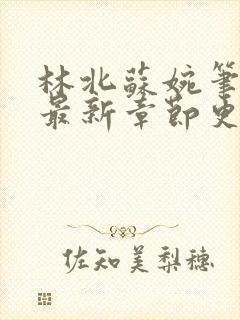 林北蘇婉筆
最新章節史
佐知美梨穗